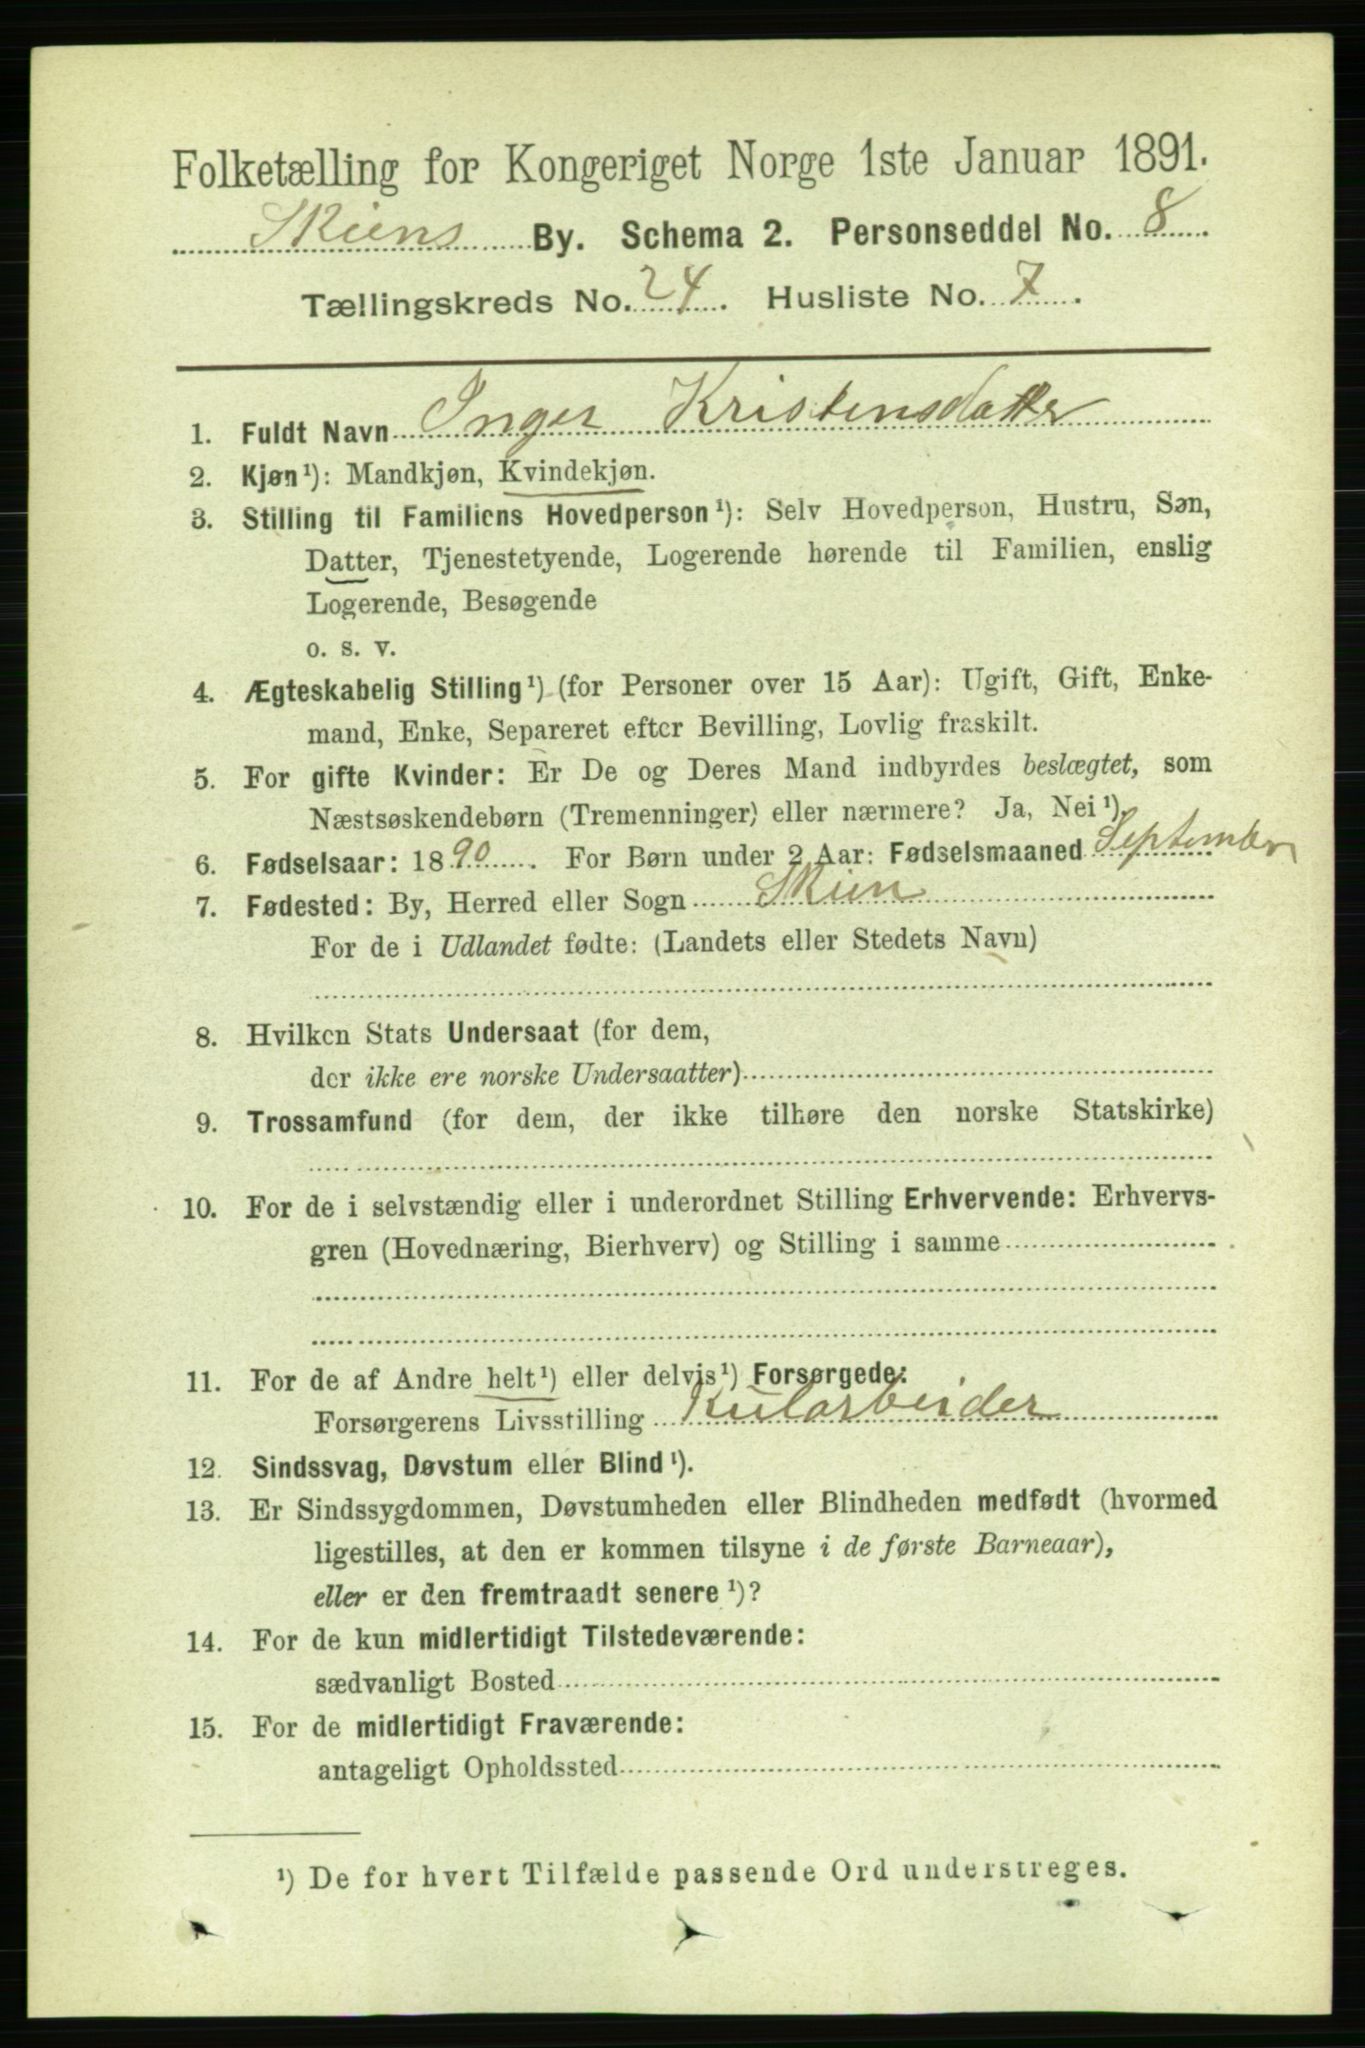 Folketælling for Kongeriget Norge 1ste Januar 1891.
Skiens By. Schema 2. Personseddel No. 8
Tællingskreds No. 24. Husliste No. 7.
1. Fuldt Navn Inger Kristensdatter
2. Kjøn¹): Mandkjøn, Kvindekjøn.
3. Stilling til Familiens Hovedperson¹): Selv Hovedperson, Hustru, Søn,
Datter, Tjenestetyende, Logerende hørende til Familien, enslig
Logerende, Besøgende
o. s. v.
4. Ægteskabelig Stilling¹) (for Personer over 15 Aar): Ugift, Gift, Enke-
mand, Enke, Separeret efter Bevilling, Lovlig fraskilt.
5. For gifte Kvinder: Er De og Deres Mand indbyrdes beslægtet, som
Næstsøskendebørn (Tremenninger) eller nærmere? Ja, Nei¹).
6. Fødselsaar: 1890. For Børn under 2 Aar: Fødselsmaaned September
7. Fødested: By, Herred eller Sogn Skien
For de i Udlandet fødte: (Landets eller Stedets Navn)
8. Hvilken Stats Undersaat (for dem,
der ikke ere norske Undersaatter)
9. Trossamfund (for dem, der ikke tilhøre den norske Statskirke)
10. For de i selvstændig eller i underordnet Stilling Erhvervende: Erhvervs-
gren (Hovednæring, Bierhverv) og Stilling i samme
11. For de af Andre helt¹) eller delvis¹) Forsørgede:
Forsørgerens Livsstilling Kularbeider
12. Sindssvag, Døvstum eller Blind¹).
13. Er Sindssygdommen, Døvstumheden eller Blindheden medfødt (hvormed
ligestilles, at den er kommen tilsyne i de første Barneaar),
eller er den fremtraadt senere¹)?
14. For de kun midlertidigt Tilstedeværende:
sædvanligt Bosted
15. For de midlertidigt Fraværende:
antageligt Opholdssted
¹) De for hvert Tilfælde passende Ord understreges.